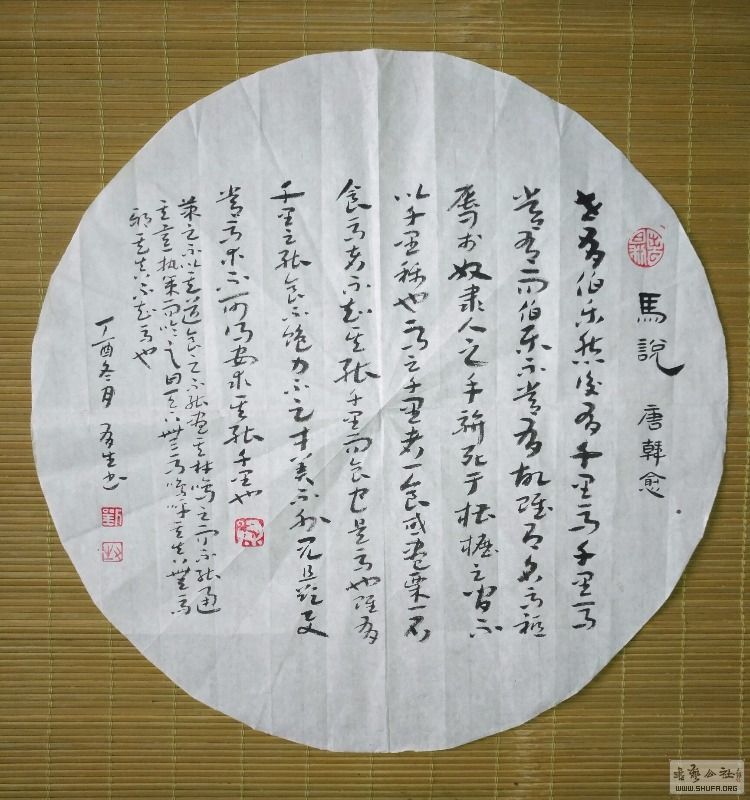 馬說 唐韓愈
世有伯乐然後有千里馬千里馬
常有而伯乐不常有故雖有名馬祇
辱於奴隶人之手駢死于槽櫪之間不
以千里稱也馬之千里者一食或盡粟一石
食馬者不知其能千里而食也是馬也雖有
千里之能食不飽力不足才美不外見且欲與
常馬等不可得安求其能千里也
策之不以其道食之不能盡其材鳴之而不能通
其意执策而臨之曰天下無馬嗚呼其真無馬
邪其真不知馬也
丁酉冬月 有生書
書藝公社
WWW.SHUFA.ORG